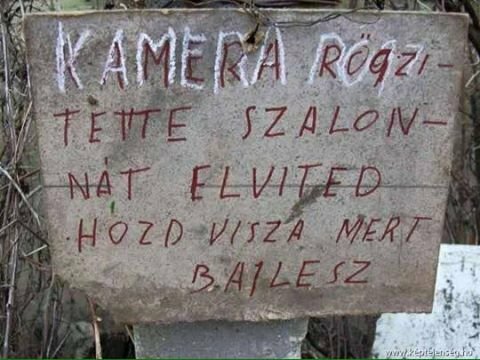 KAMERA RÖGZI-
TETTE SZALON-
NÁT ELVITED
HOZD VISZA MERT
BAJLESZ
www.képtelenség.hu